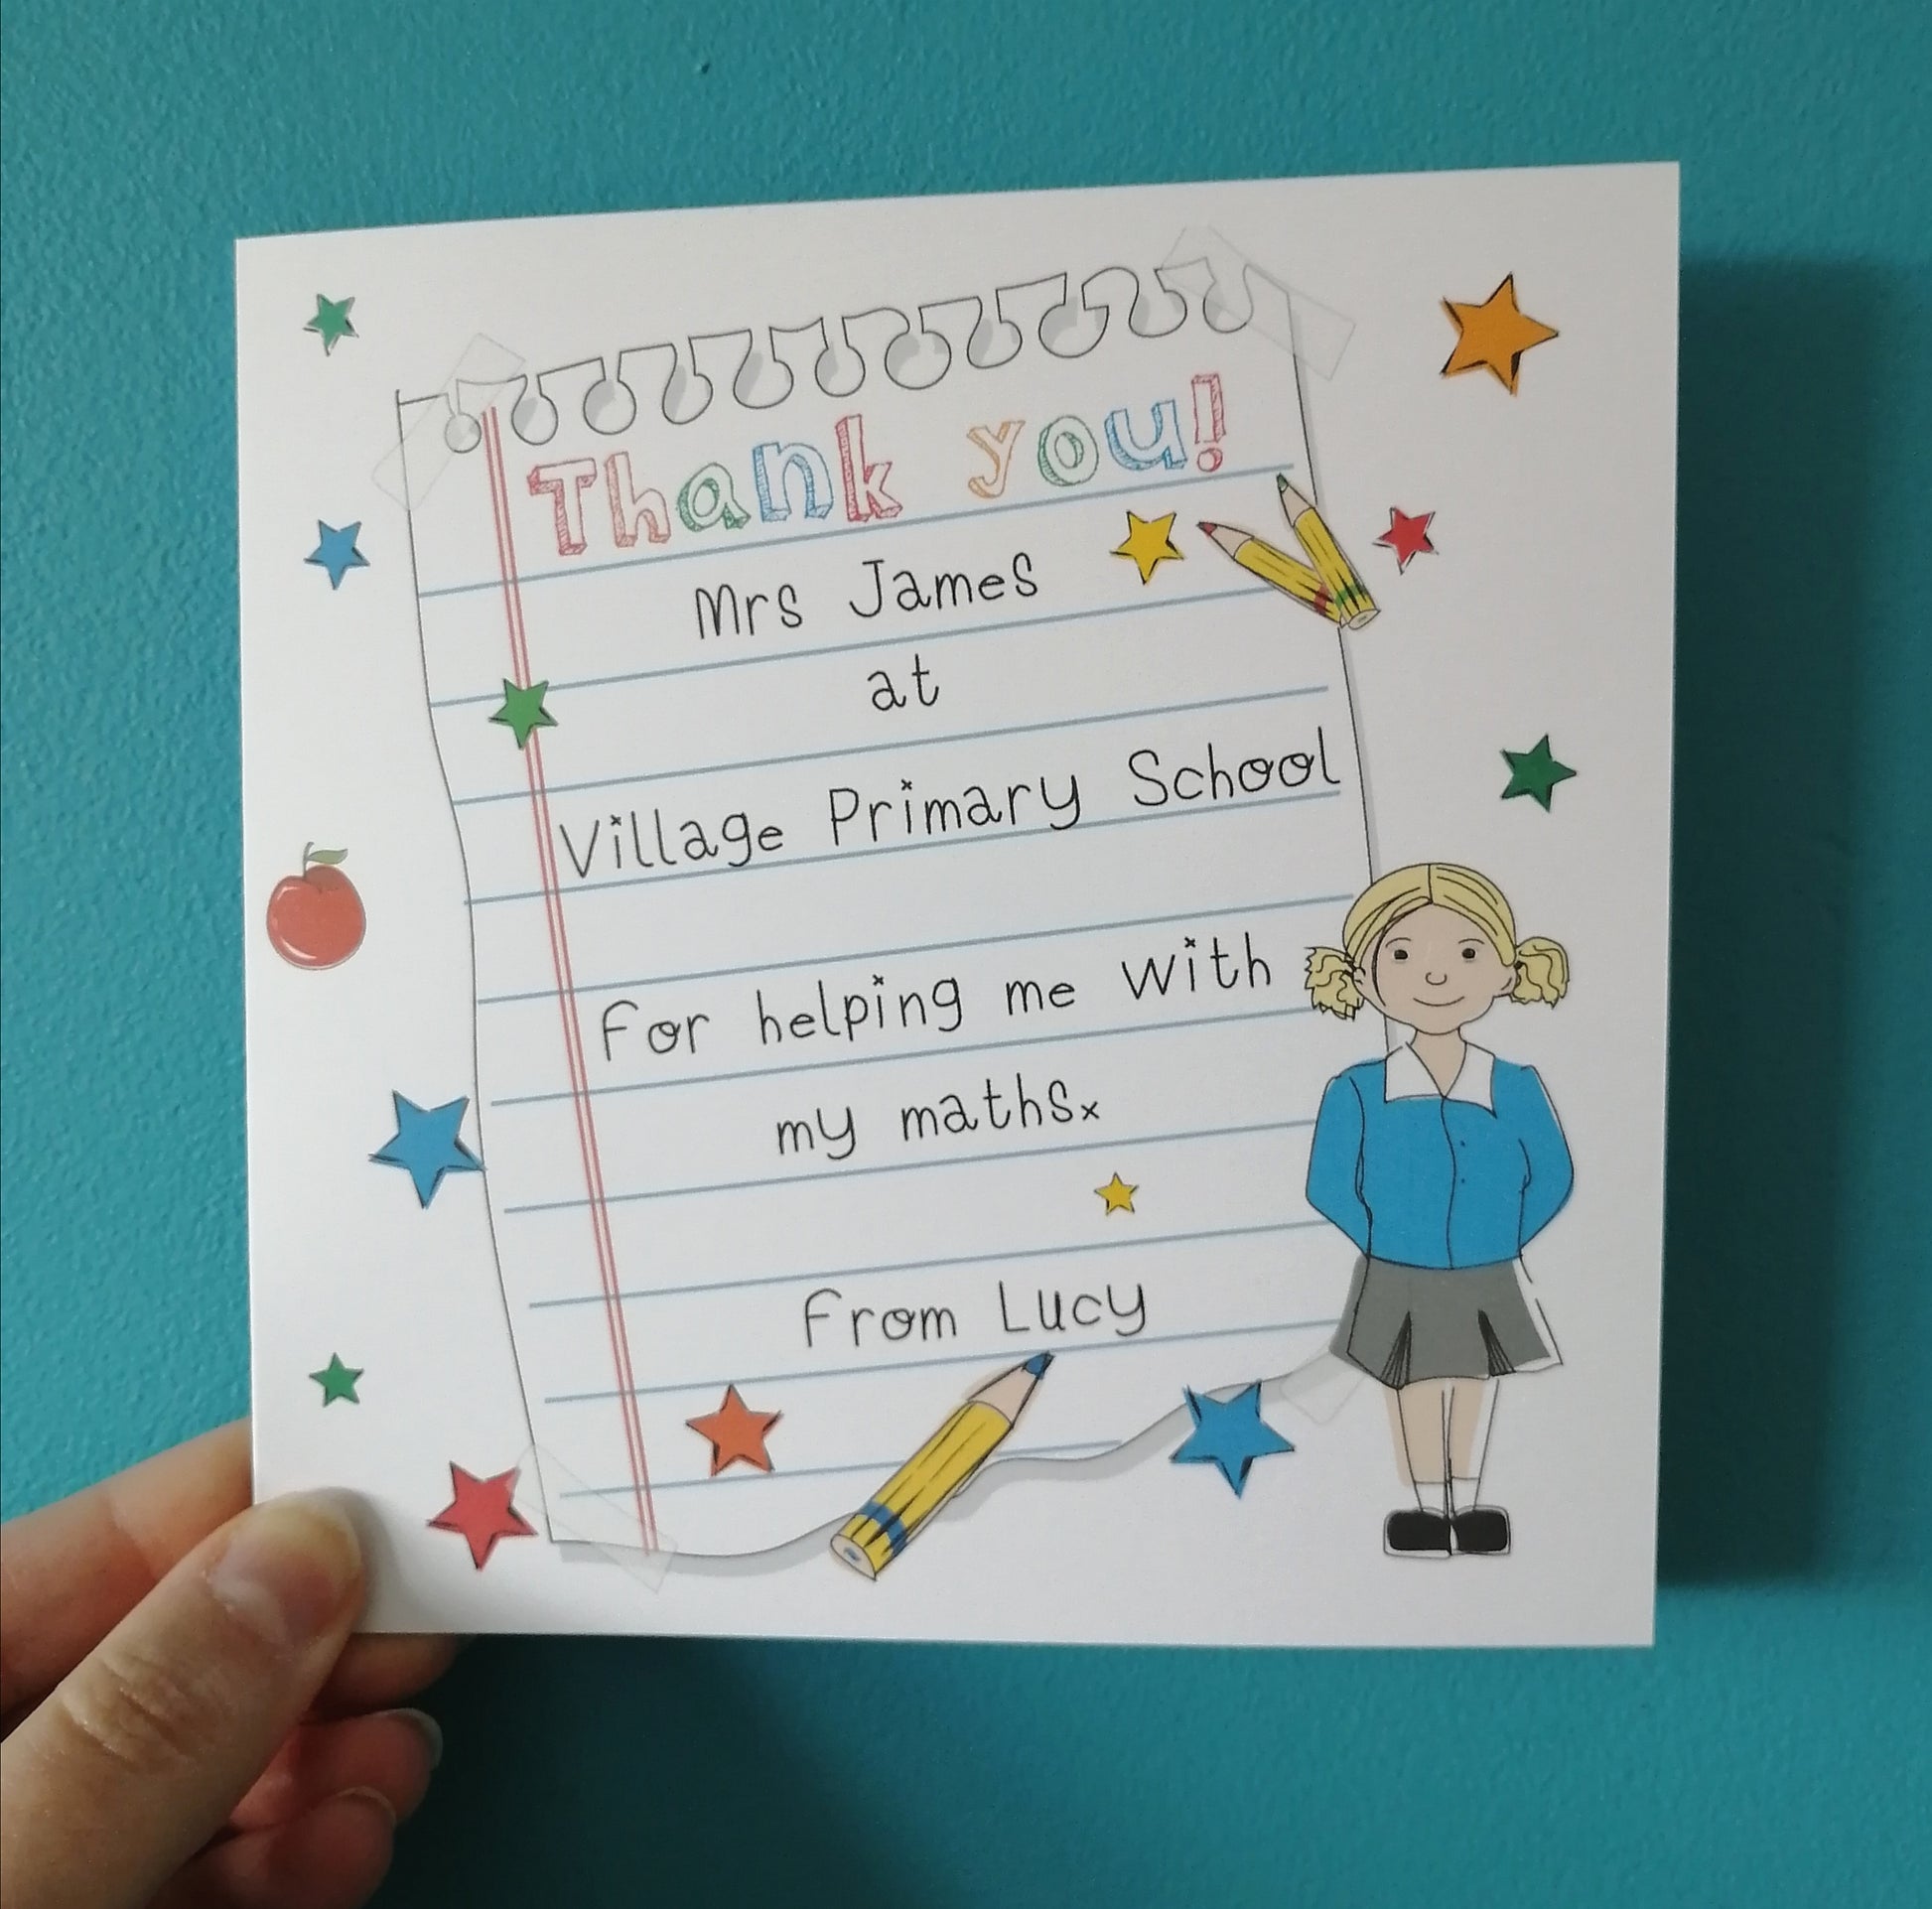 Thank you!
Mrs James
at
Village Primary School
For helping me with
my mathsx
From Lucy